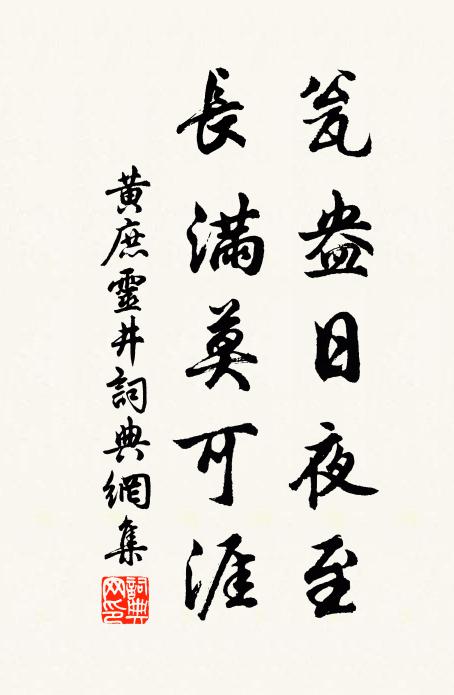 瓮盎日夜至
長滿莫可涯
黃庶靈井詞典網集
詞典網印